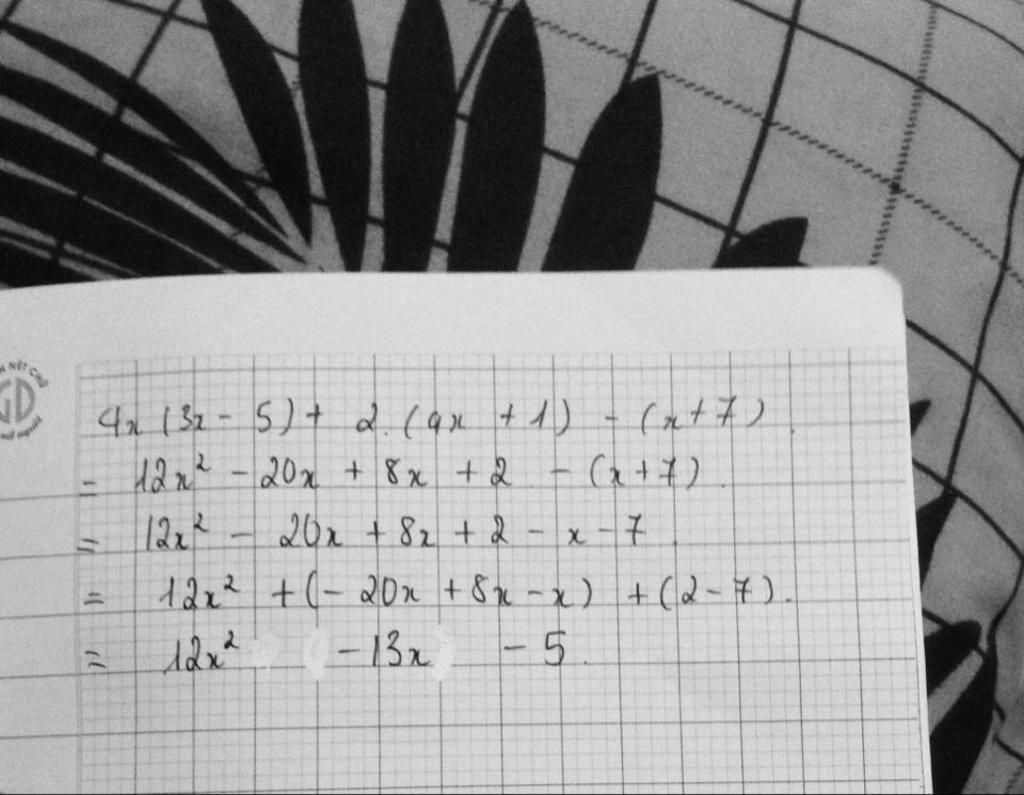 4x (3x - 5) + 2. (4x + 1) - (x + 7)
= 12x² - 20x + 8x + 2 - (x + 7)
= 12x² - 20x + 8x + 2 - x - 7
= 12x² + (- 20x + 8x - x) + (2 - 7).
= 12x² - 13x - 5.
NÉT CHỮ
GD